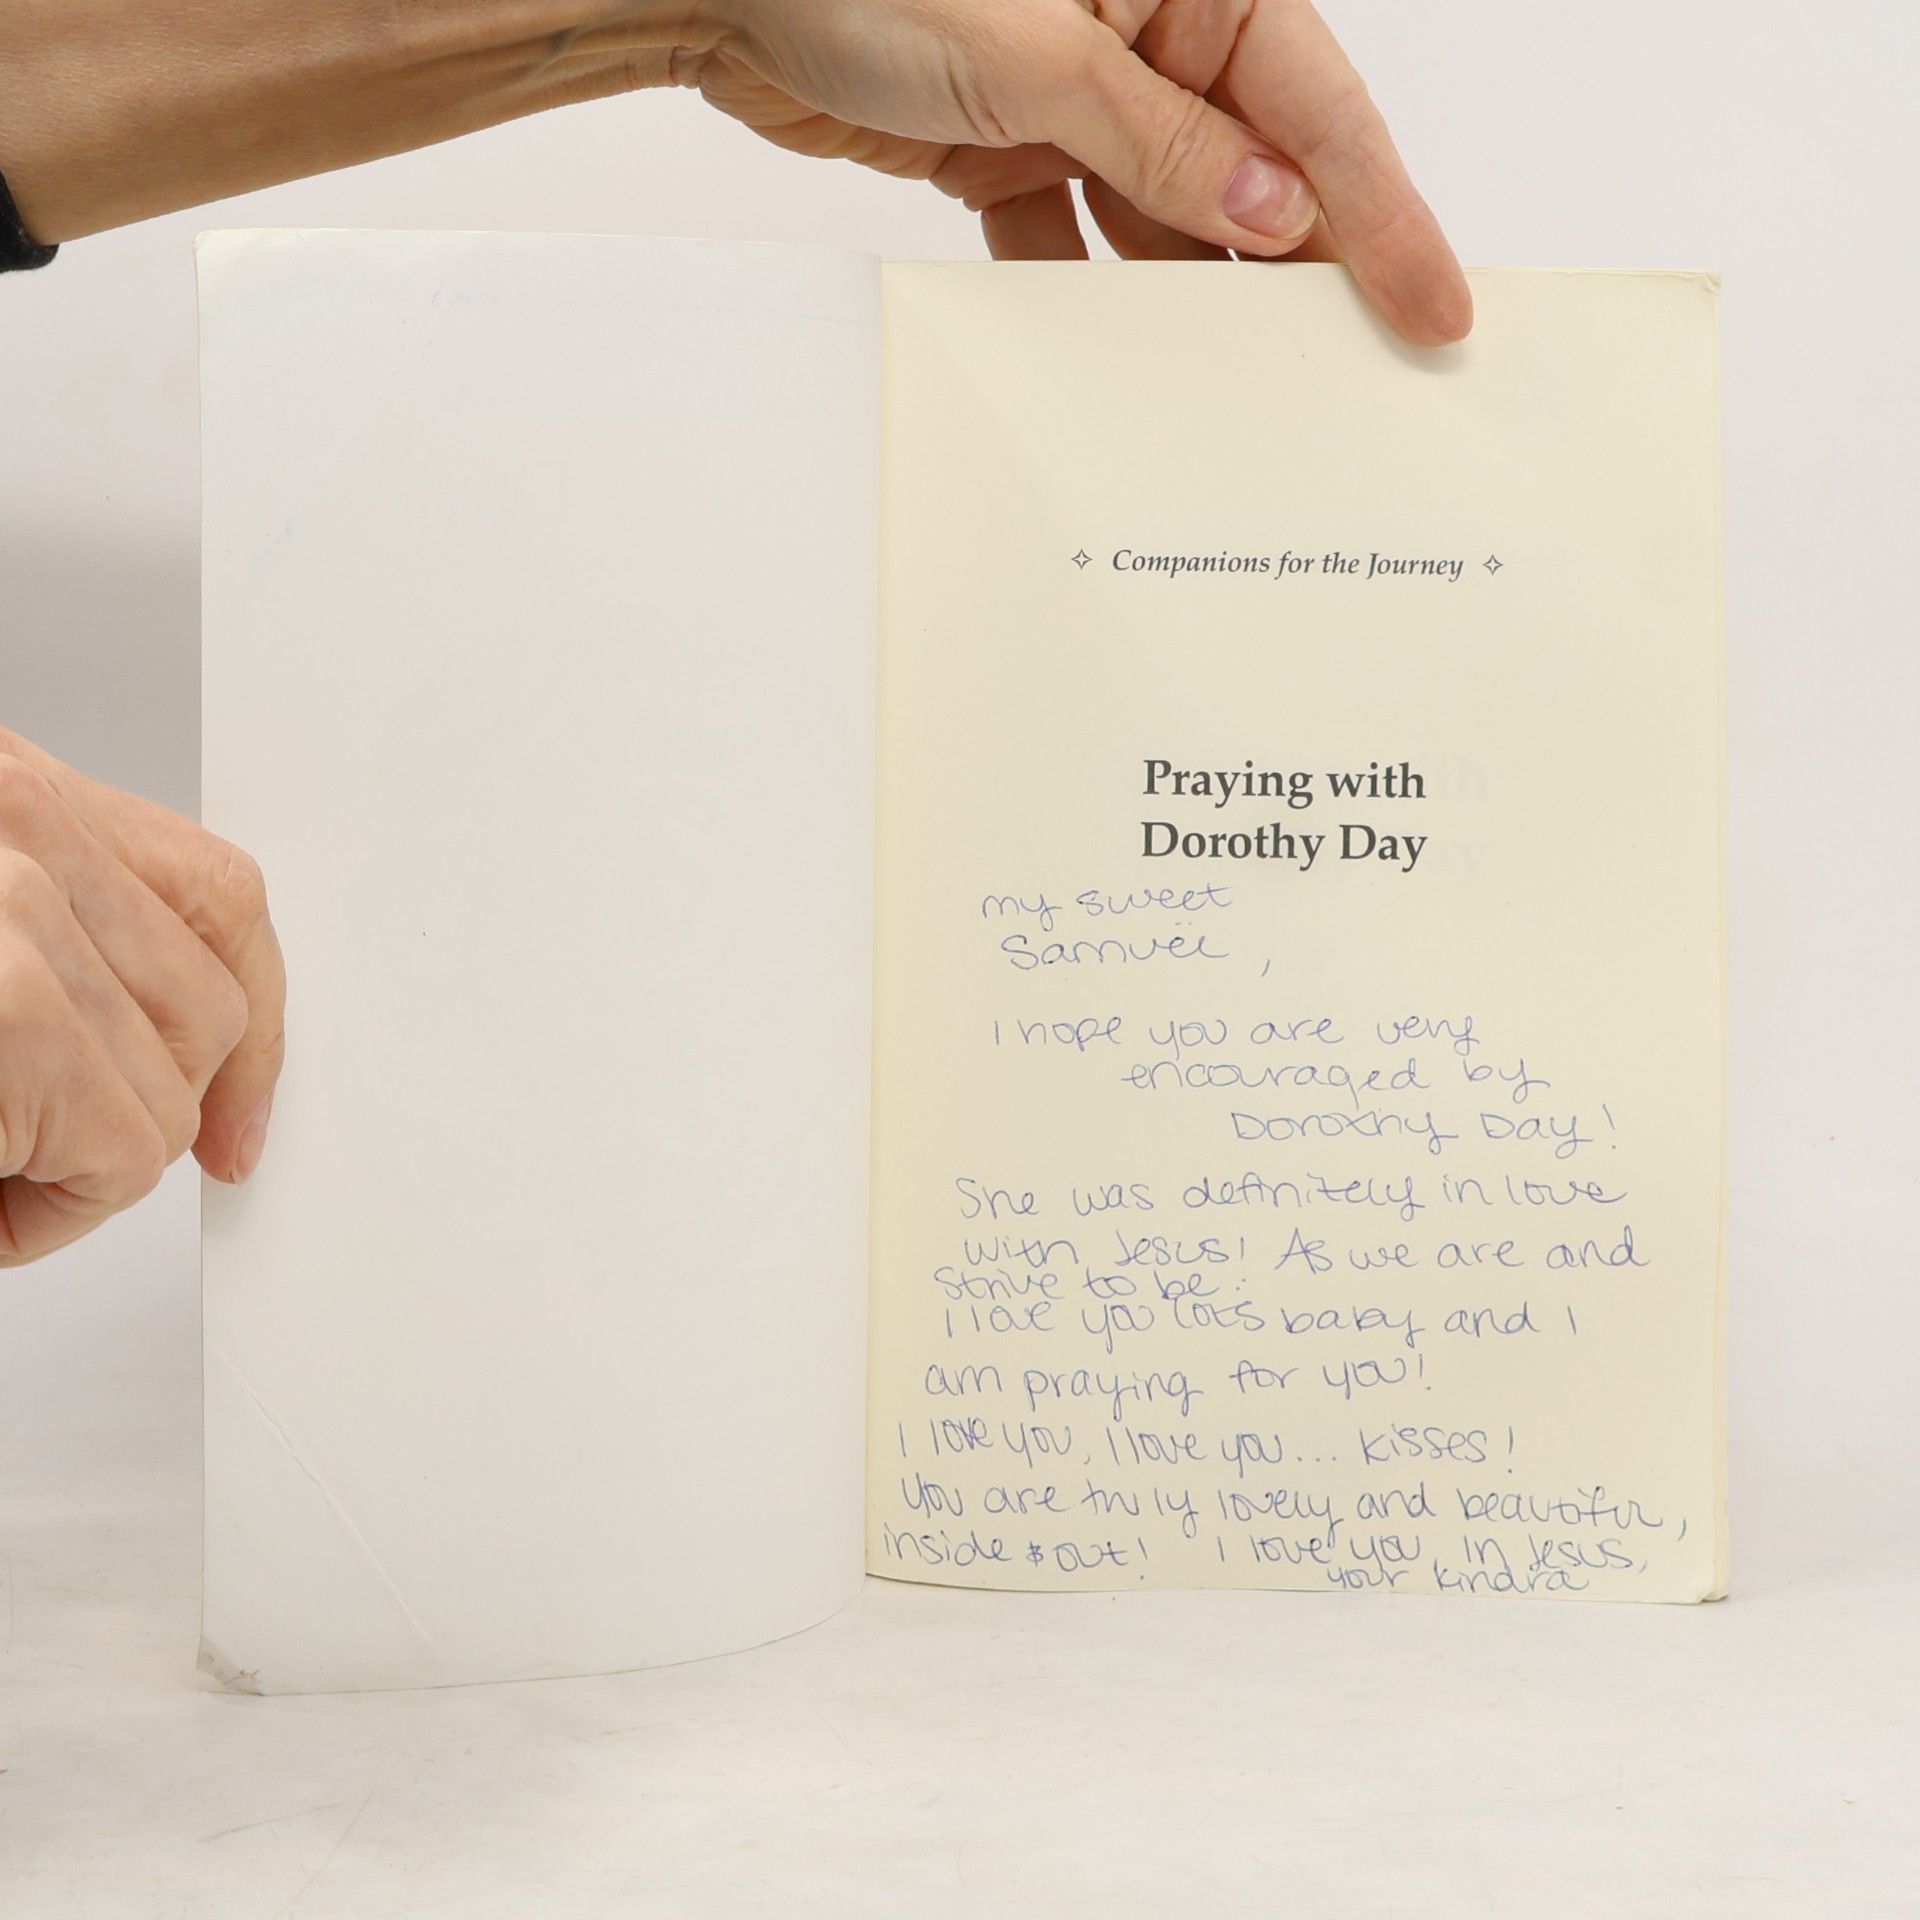 ✧ Companions for the Journey ✧
Praying with
Dorothy Day
my sweet
Samuël,
I hope you are very
encouraged by
Dorothy Day!
She was definitely in love
with Jesus! As we are and
strive to be :
I love you lots baby and I
am praying for you!
I love you, I love you... kisses!
You are truly lovely and beautiful,
inside & out! I love you, in Jesus,
your Kindra